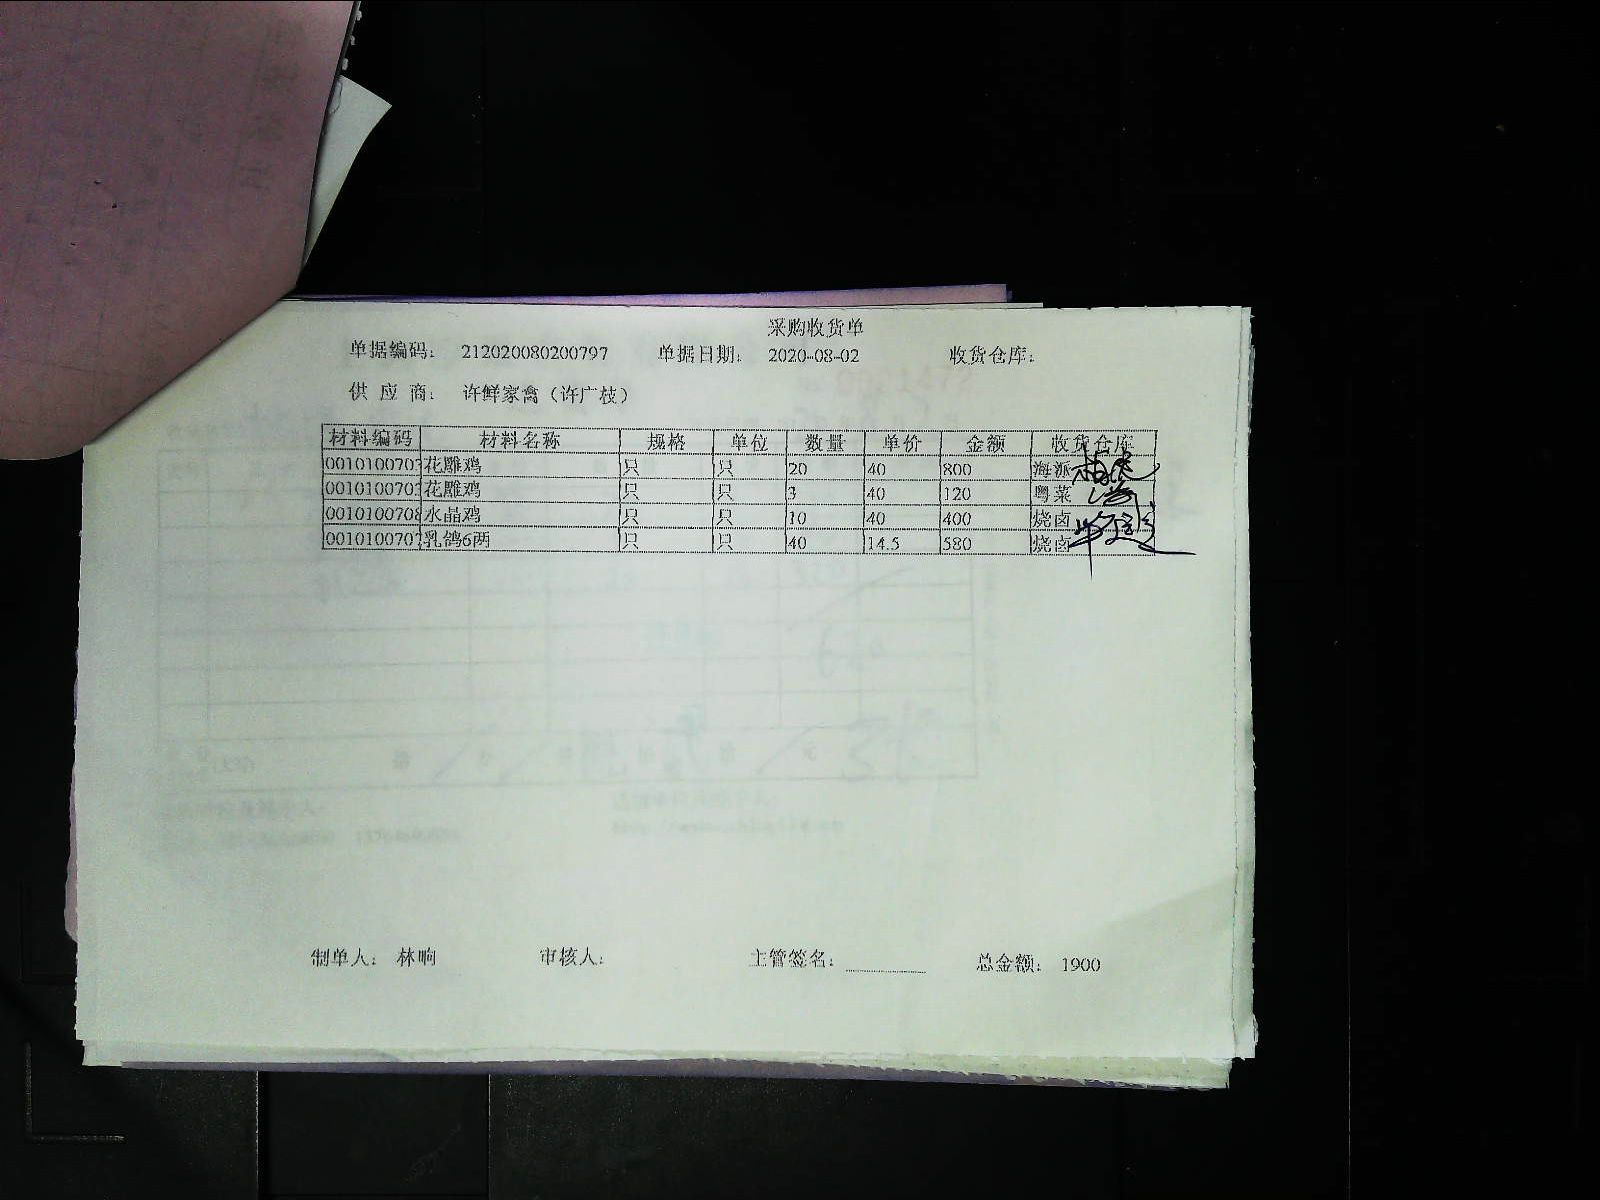 采购收货单
单据编码： 212020080200797 单据日期： 2020-08-02 收货仓库：
供 应 商： 许鲜家禽（许广枝）
材料编码 材料名称 规格 单位 数量 单价 金额 收货仓库
0010100703 花雕鸡 只 只 20 40 800 海派
0010100703 花雕鸡 只 只 3 40 120 粤菜
0010100708 水晶鸡 只 只 10 40 400 烧卤
0010100707 乳鸽6两 只 只 40 14.5 580 烧卤
制单人： 林响 审核人： 主管签名： 总金额： 1900